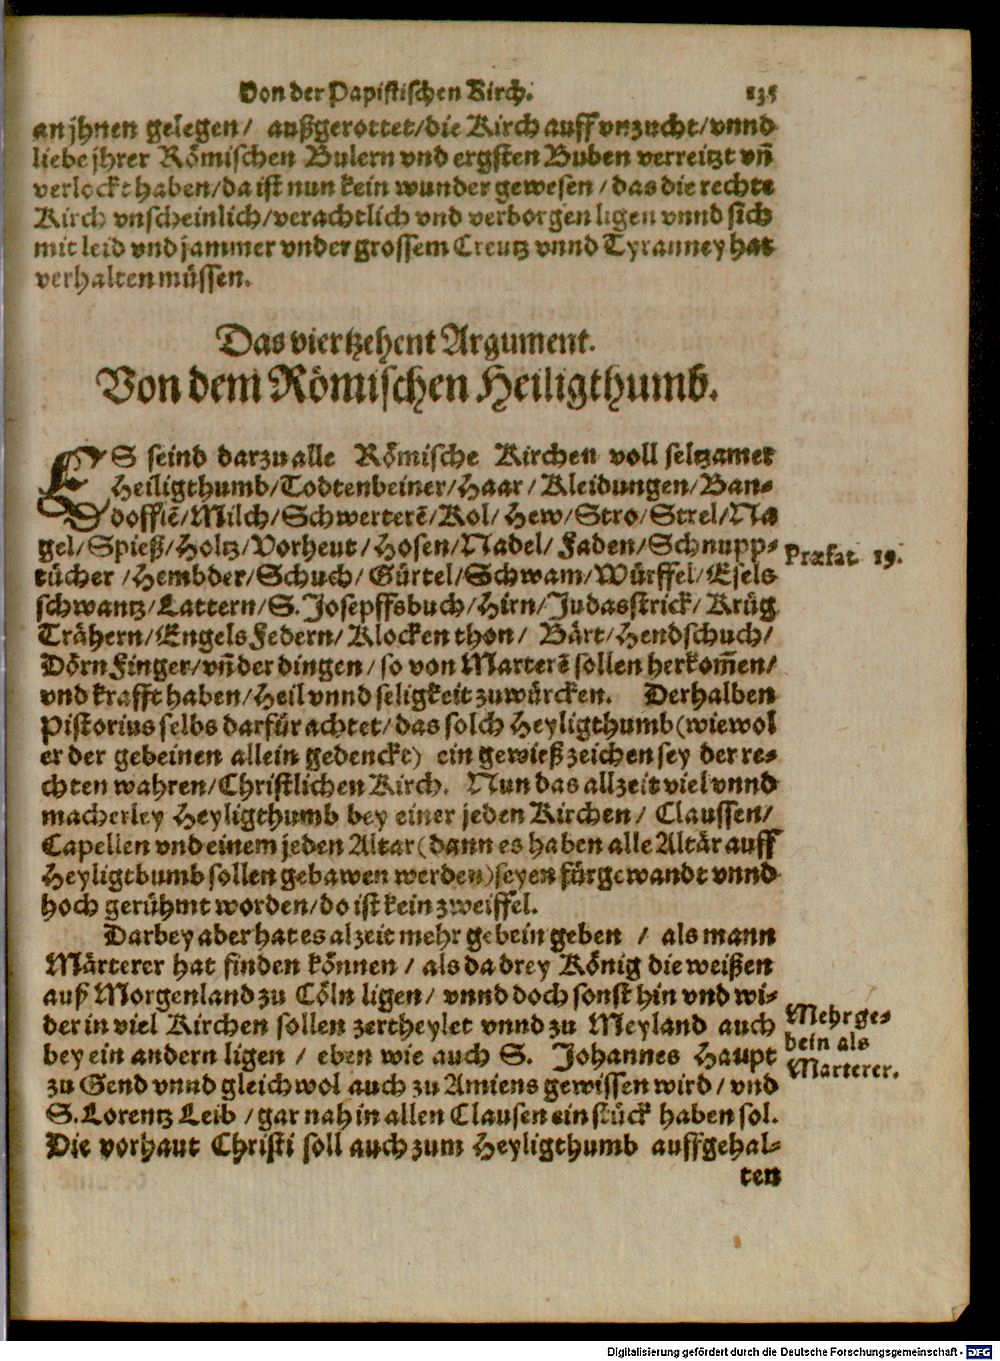 Von der Papistischen Kirch. 135
an jhnen gelegen/ außgerottet/die Kirch auff vnzucht/vnnd
liebe jhrer Römischen Bulern vnd ergsten Buben verreitzt vñ
verlockt haben/da ist nun kein wunder gewesen/das die rechte
Kirch vnscheinlich/verachtlich vnd verborgen ligen vnnd sich
mit leid vnd jammer vnder grossem Creutz vnnd Tyranney hat
verhalten müssen.
Das viertzehent Argument.
Von dem Römischen Heiligthumb.
ES seind darzu alle Römische Kirchen voll seltzamer
Heiligthumb/Todtenbeiner/Haar/Kleidungen/Ban-
doffiẽ/Milch/Schwerterẽ/Kol/Hew/Stro/Strel/Na
gel/Spieß/Holtz/Vorheut/Hosen/Nadel/Faden/Schnupp-
tücher/Hembder/Schuch/Gürtel/Schwam/Würffel/Esels
schwantz/Lattern/S. Josepffsbuch/Hirn/Judasstrick/Krüg
Trähern/Engels Federn/Klocken thon/ Bärt/Hendschuch/
Dörn Finger/vñ der dingen/so von Marterẽ sollen herkom̃en/
vnd krafft haben/Heil vnnd seligkeit zu würcken. Derhalben
Pistorius selbs darfür achtet/das solch Heyligthumb(wiewol
er der gebeinen allein gedenckt) ein gewieß zeichen sey der re-
chten wahren/Christlichen Kirch. Nun das allzeit viel vnnd
macherley Heyligthumb bey einer jeden Kirchen/ Claussen/
Capellen vnd einem jeden Altar(dann es haben alle Altär auff
Heyligthumb sollen gebawen werden)seyen fürgewandt vnnd
hoch gerühmt worden/do ist kein zweiffel.
Darbey aber hat es alzeit mehr gebein geben / als mann
Märterer hat finden können / als da drey König die weißen
auß Morgenland zu Cöln ligen/ vnnd doch sonst hin vnd wi-
der in viel Kirchen sollen zertheylet vnnd zu Meyland auch
bey ein andern ligen / eben wie auch S. Johannes Haupt
zu Gend vnnd gleichwol auch zu Amiens gewissen wird/ vnd
S. Lorentz Leib / gar nah in allen Clausen ein stück haben sol.
Die vorhaut Christi soll auch zum Heyligthumb auffgehal-
ten
Præfat 19.
Mehr ge-
bein als
Marterer.
Digitalisierung gefördert durch die Deutsche Forschungsgemeinschaft - DFG